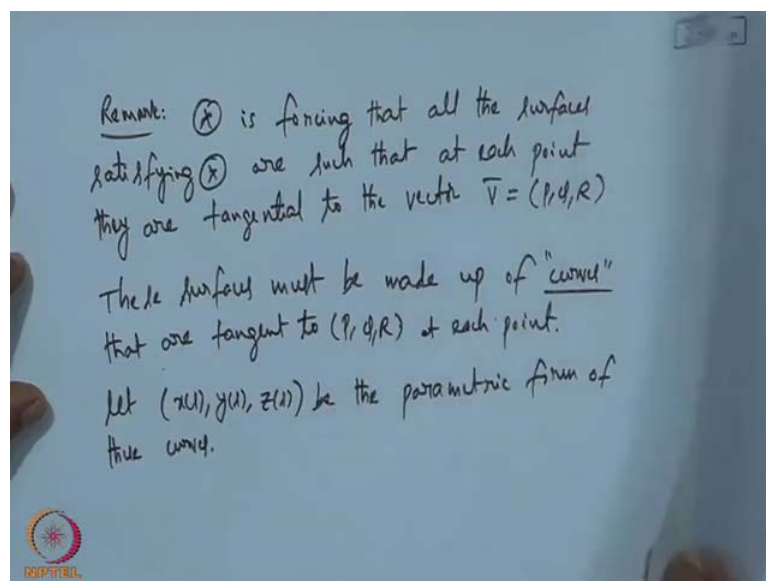 Remark: ⊛ is forcing that all the surfaces
satisfying ⊛ are such that at each point
they are tangential to the vector V̅ = (P,Q,R)
These surfaces must be made up of "curves"
that are tangent to (P,Q,R) at each point.
Let (x(s), y(s), z(s)) be the parametric form of
these curves.
NPTEL